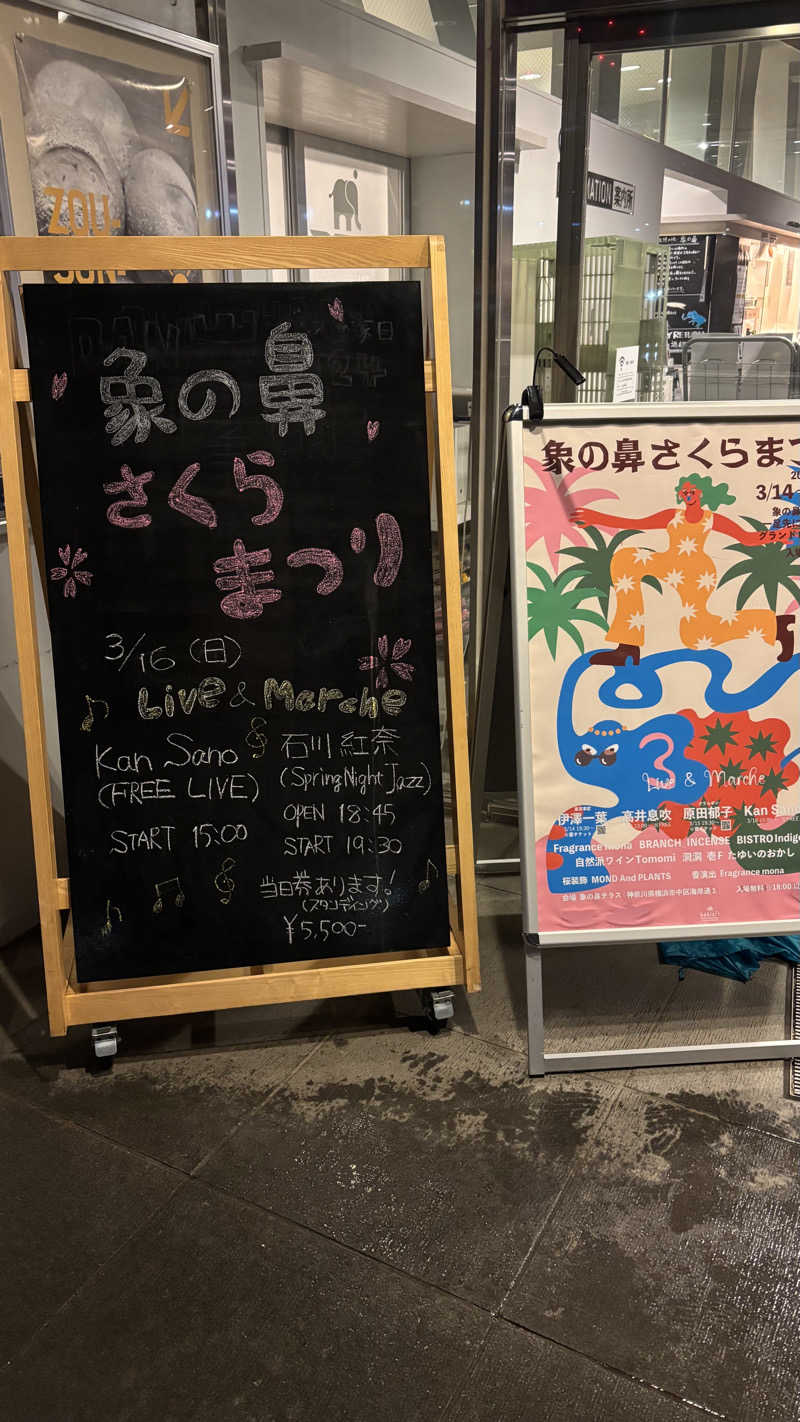 ZOU-
象の鼻
さくら
まつり
3/16 (日)
Live & Marche
Kan Sano
(FREE LIVE)
START 15:00
石川 紅奈
(Spring Night Jazz)
OPEN 18:45
START 19:30
当日券あります!
(スタンディング)
¥5,500-
MATION 案内所
象の鼻さくらまつ
3/14
象の鼻
一足先に
グランド
Live & Marche
伊澤一葉 高井息吹 原田郁子 Kan Sano
Fragrance mona BRANCH INCENSE BISTRO Indigo
自然派ワインTomomi 洞洞 壱F たゆいのおかし
桜装飾 MOND And PLANTS 香演出 Fragrance mona
会場 象の鼻テラス 神奈川県横浜市中区海岸通1 入場無料